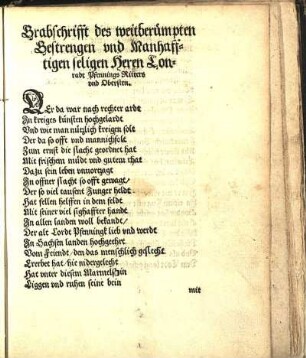 Grabschrifft des weitberümpten
Gestrengen vnd Manhaff-
tigen seligen Heren Con-
radt Pfennings Ritters
vnd Obersten.
Er da war nach rechter arde
Zu kreiges künsten hochgelarde
Vnd wie man nützlich kreigen solt
Der da so offt vnd mannichfolt
Zum ernst die slacht geordnet hat
Mit frischem müdt vnd gutem that
Dazu sein leben vnuortzagt
In offner slacht so offt gewagt/
Der so viel tausent Junger heldt
Hat fellen helffen in dem feldt
Mit seiner viel sighaffter handt
In allen landen woll bekandt/
Der alt Cordt Pfenningk lieb vnd werdt
Zu Sachsen landen hochgeehrt
Vom Friende/ den das menschlich geslecht
Ererbet hat/ hie nidergelecht
Hat vnter diesem Marmelstein
Liggen vnd ruhen seine bein
mit